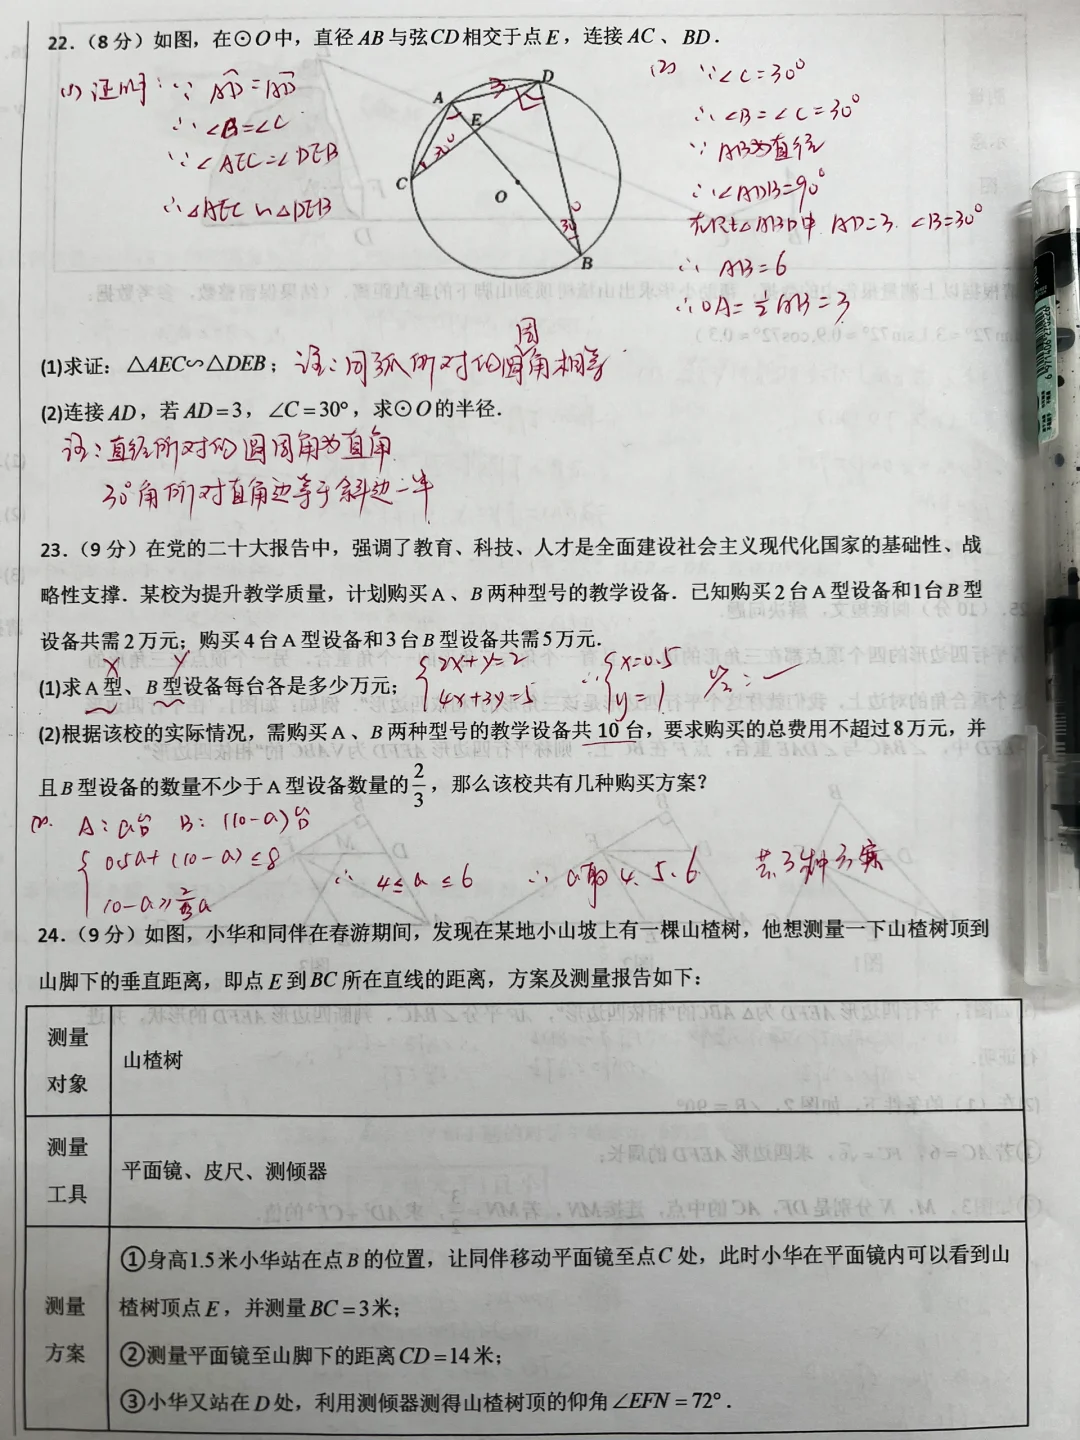 22.（8 分）如图，在⊙O中，直径AB与弦CD相交于点E，连接AC、BD.
(1) 证明：∵ AD=AD
∴ ∠B=∠C
∵ ∠AEC=∠DEB
∴ △AEC∽△DEB
A
D
3
E
30°
C
O
30°
B
(2) ∵∠C=30°
∴ ∠B=∠C=30°
∵ AB为直径
∴ ∠ADB=90°
在Rt△ABD中 AD=3. ∠B=30°
∴ AB=6
∴ OA=½AB=3
(1)求证：△AEC∽△DEB；注：同弧所对的圆周角相等
(2)连接AD，若AD=3，∠C=30°，求⊙O的半径.
注：直径所对的圆周角为直角
30°角所对直角边等于斜边一半
23.（9 分）在党的二十大报告中，强调了教育、科技、人才是全面建设社会主义现代化国家的基础性、战
略性支撑．某校为提升教学质量，计划购买A、B两种型号的教学设备．已知购买2台A型设备和1台B型
设备共需2万元；购买4台A型设备和3台B型设备共需5万元．
x y
(1)求A型、B型设备每台各是多少万元；
{2x+y=2
4x+3y=5
∴{x=0.5
y=1
(2)根据该校的实际情况，需购买A、B两种型号的教学设备共10台，要求购买的总费用不超过8万元，并
且B型设备的数量不少于A型设备数量的2/3，那么该校共有几种购买方案？
(2). A：a台 B：(10-a)台
{0.5a+(10-a)≤8
10-a≥2/3a
∴ 4≤a≤6 ∴ a取4、5、6 共3种方案
24.（9 分）如图，小华和同伴在春游期间，发现在某地小山坡上有一棵山楂树，他想测量一下山楂树顶到
山脚下的垂直距离，即点E到BC所在直线的距离，方案及测量报告如下：
测量
对象
山楂树
测量
工具
平面镜、皮尺、测倾器
测量
方案
①身高1.5米小华站在点B的位置，让同伴移动平面镜至点C处，此时小华在平面镜内可以看到山
楂树顶点E，并测量BC=3米；
②测量平面镜至山脚下的距离CD=14米；
③小华又站在D处，利用测倾器测得山楂树顶的仰角∠EFN=72°．